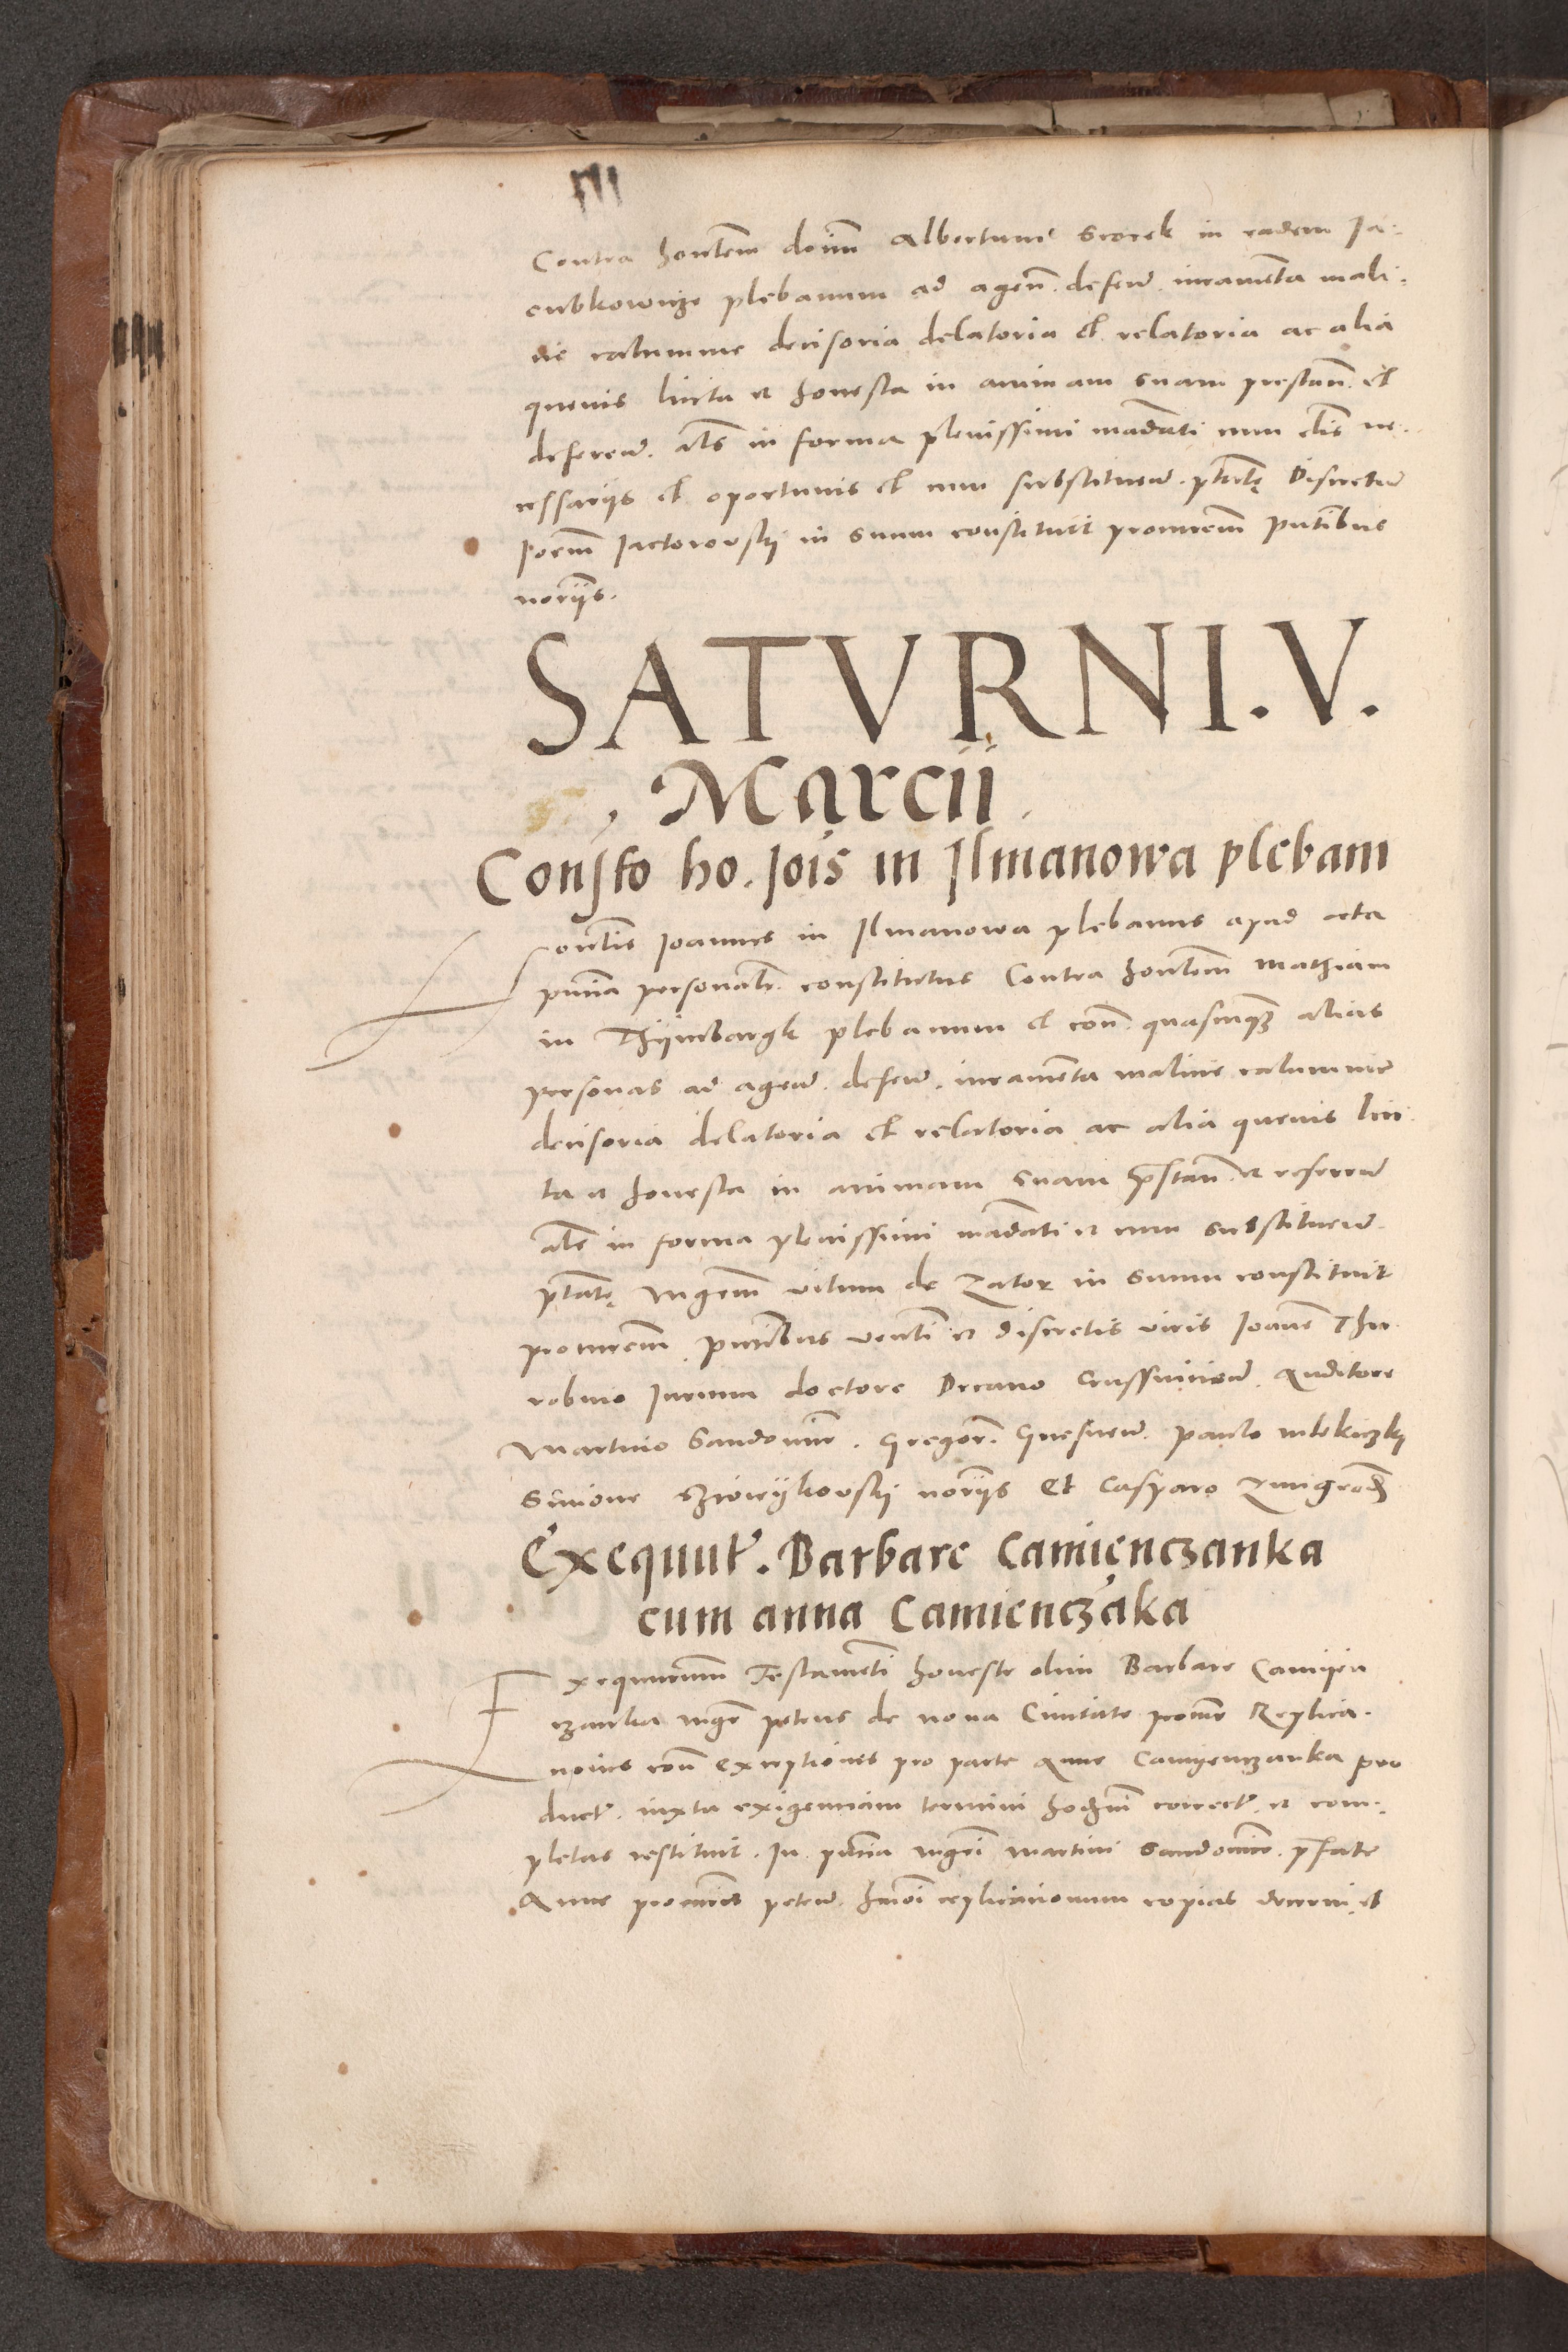 Contra hon̄lem doim̄ Albertum Srocek in eadem Ia-
cubkowicze plebanum ad agen̄. defen̄. iuramenta mali-
cie calumnie decisoria delatoria et relatoria ac alia
quevis licita et honesta in animam suam prestan̄. et
deferen̄. al̄s in forma plenissimi man̄dati cum cl̄is ne-
cessariis et oportunis et cum substituen̄. ptatę Discretū
Ioem̄ Iactorovskij in suum constituit procurem̄ pn̄tibus
norijs.
SATVRNI. V.
Marcii
Consto ho. Iois in Ilmanowa plebani
Honl̄is Ioannes in Ilmanowa plebanus apud acta
pn̄cia personalr̄. constitutus Contra honl̄em Mathiam
in Thijmbargk plebanum et con̄. quascunqz alias
personas ad agen̄. defen̄. iuramenta malicie calumnie
decisoria delatoria et relatoria ac alia quevis lici
ta et honesta in animam suam p̄stan̄. et referen̄
al̄s in forma plenissimi man̄dati et cum substituen̄.
ptatę Mgrm̄ vitum de Zator in suum constituit
procurem̄. pn̄tibus ven̄li et Discretis viris Ioan̄e Thu
robino Iurium doctore Decano Crussuicien̄. Auditore
Martino Sandomir̄. Gregor̄. Gnesnen̄. Paulo
Simone norijs Et Casparo Zmigrod̄
Exequut̄. Barbare Camienczanka
cum anna Camienczāka
Exequutorum̄ Testamen̄ti honeste olim Barbare Camyen
czanka Mgr̄ petrus de nova Civitate procur̄ Replica-
ciones con̄ exceptiones pro parte Anne Camyenczanka pro
duct̄. iuxta exigenciam termini hodrni correct̄. et com-
pletas restituit. In pn̄cia Mgr̄i Martini Sandomir̄. pfate
Anne procuris peten̄. hmoi replicacionum copias decerni. et